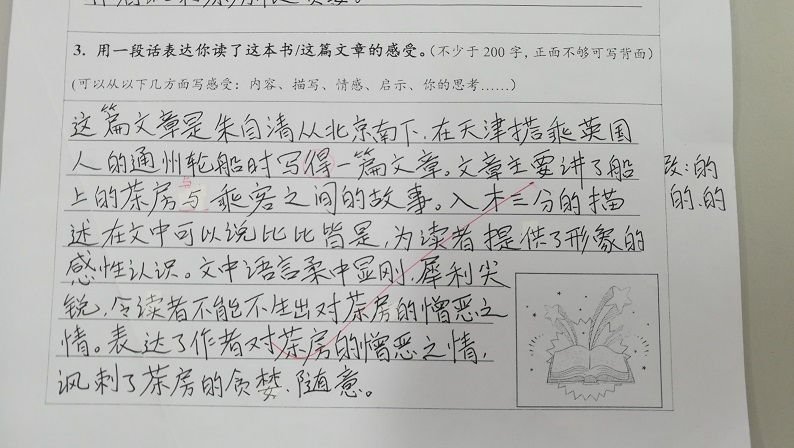 3. 用一段话表达你读了这本书/这篇文章的感受。(不少于 200 字，正面不够可写背面)
(可以从以下几方面写感受：内容、描写、情感、启示、你的思考……)
这篇文章是朱自清从北京南下，在天津搭乘英国
人的通州轮船时写得一篇文章。文章主要讲了船
改：的
上的茶房与乘客之间的故事。入木三分的描
的.的
述在文中可以说比比皆是，为读者提供了形象的
感性认识。文中语言柔中显刚，犀利尖
锐，令读者不能不生出对茶房的憎恶之
情。表达了作者对茶房的憎恶之情，
讽刺了茶房的贪婪、随意。